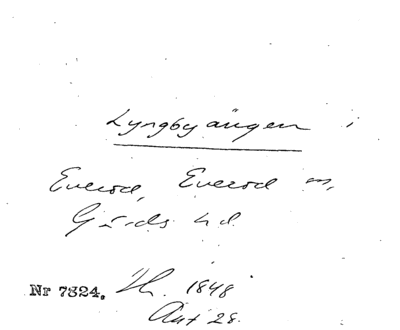 Lyngbyängen i
Everöd, Everöd sn,
Gärds hd
Nr 7824. Th. 1848
Akt 28.